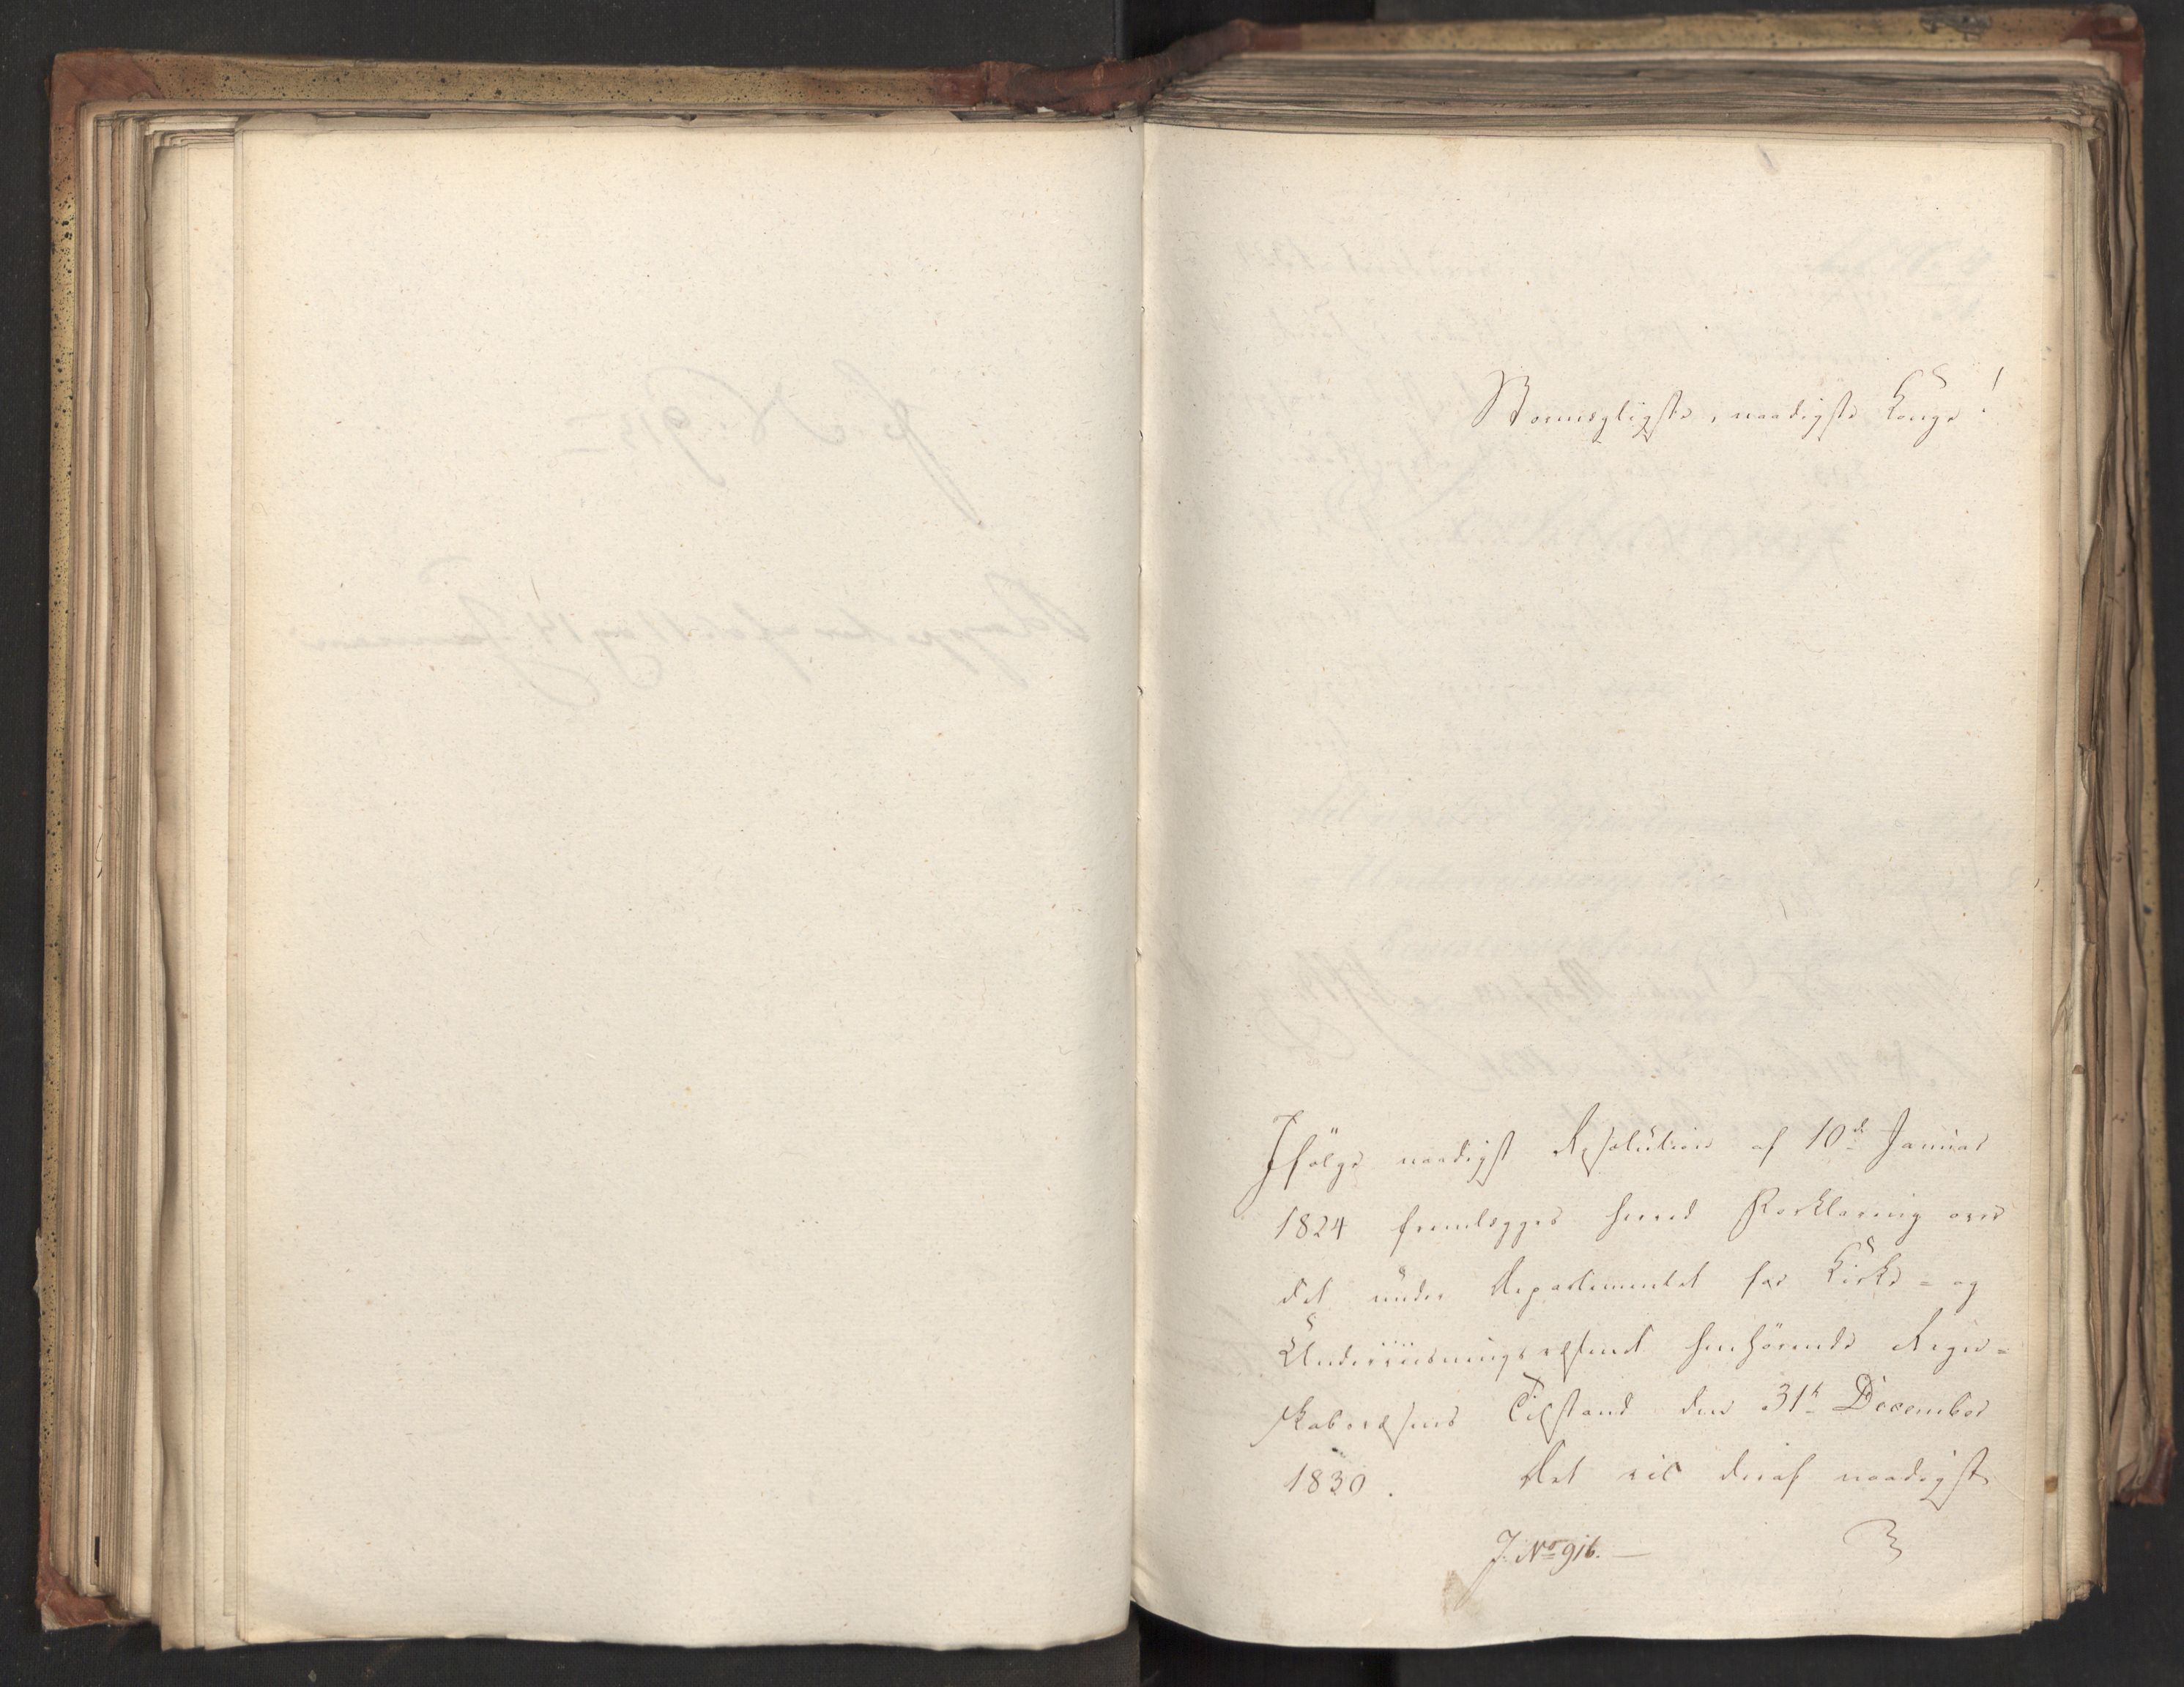 Stormægtigste, naadigste Konge!
Ifölge naadigst Resolution af 10de Januar
1824 fremlægges herved Forklaring over
det under Departementet for Kirke- og
Underviisningsvæsenet henhörende Regn-
skabsvæsens Tilstand den 31te December
1830. Det vil deraf naadigst
J. No 916. —